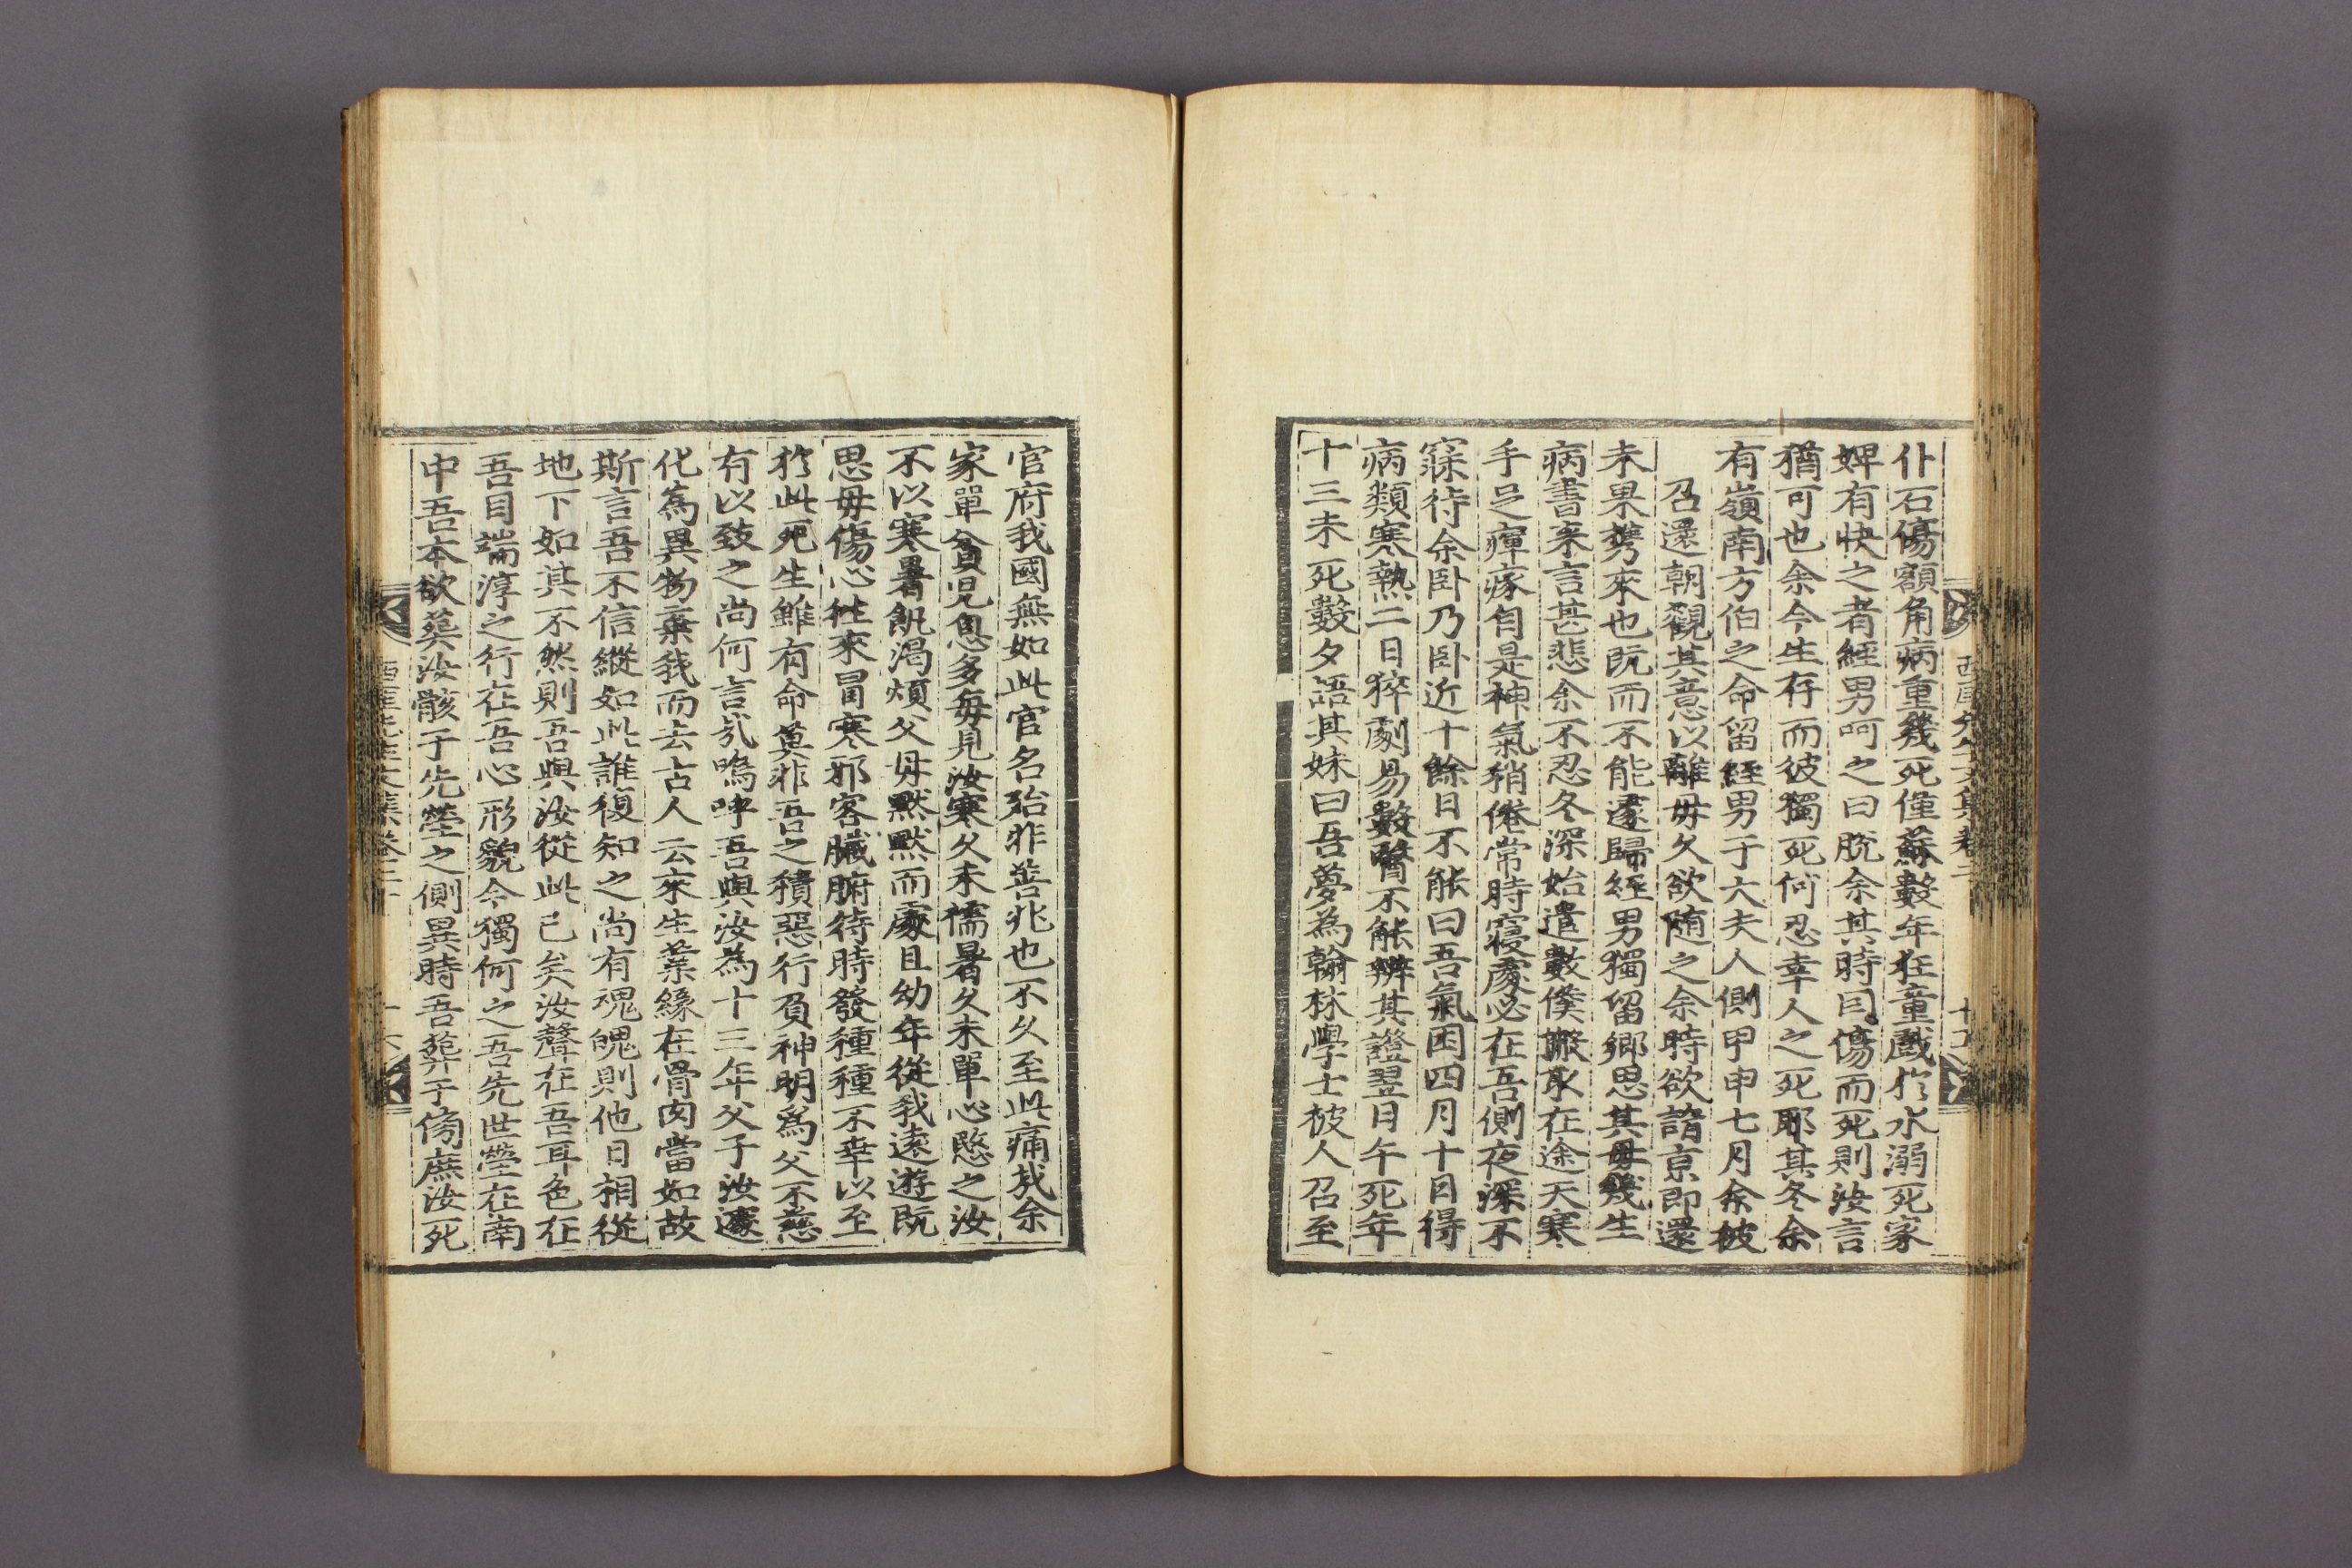 仆石傷額角病重幾死僅蘇數年在童戱於水溺死家
婢有快之者經男呵之曰脫余其時因傷而死則汝言
猶可也余今生存而彼獨死何忍幸人之死耶其冬余
有嶺南方伯之命留經男于大夫人側甲申七月余被
召還朝覲其意以離毋久欲随之余時欲詣京即還
未果携來也旣而不能遽歸經男獨留鄉思其毋幾生
病書来言甚悲余不忍冬深始遣數僕搬取在途天寒
手足瘇瘃自是神氣稍倦常時寢處必在吾側夜深不
寐待余卧乃卧近十餘日不能曰吾氣困四月十日得
病類寒熱二日猝劇易數醫不能辨其證翌日午死年
十三未死數夕語其妹曰吾夢為翰林學士被人召至
官府我國無如此官名殆非善兆也不久至此痛㢤余
家單貧兒息多每見汝寒久未襦暑久未單心愍之汝
不以寒暑飢渴煩父母默默而處且幼年從我遠遊旣
思毋傷心徃來冒寒邪客臟腑待時發種種不幸以至
於此死生雖有命莫非吾之積惡行負神明爲父不慈
有以致之尚何言㢤嗚呼吾與汝為十三年父子汝遽
化為異物棄我而去古人云來生業緣在骨肉當如故
斯言吾不信縱如此誰復知之尚有魂魄則他日相從
地下如其不然則吾與汝從此已矣汝聲在吾耳色在
吾目端淳之行在吾心形貌今獨何之吾先世塋在南
中吾本欲葬汝骸于先塋之側異時吾葬于傍庶汝死
西厓先生文集卷二十 十六